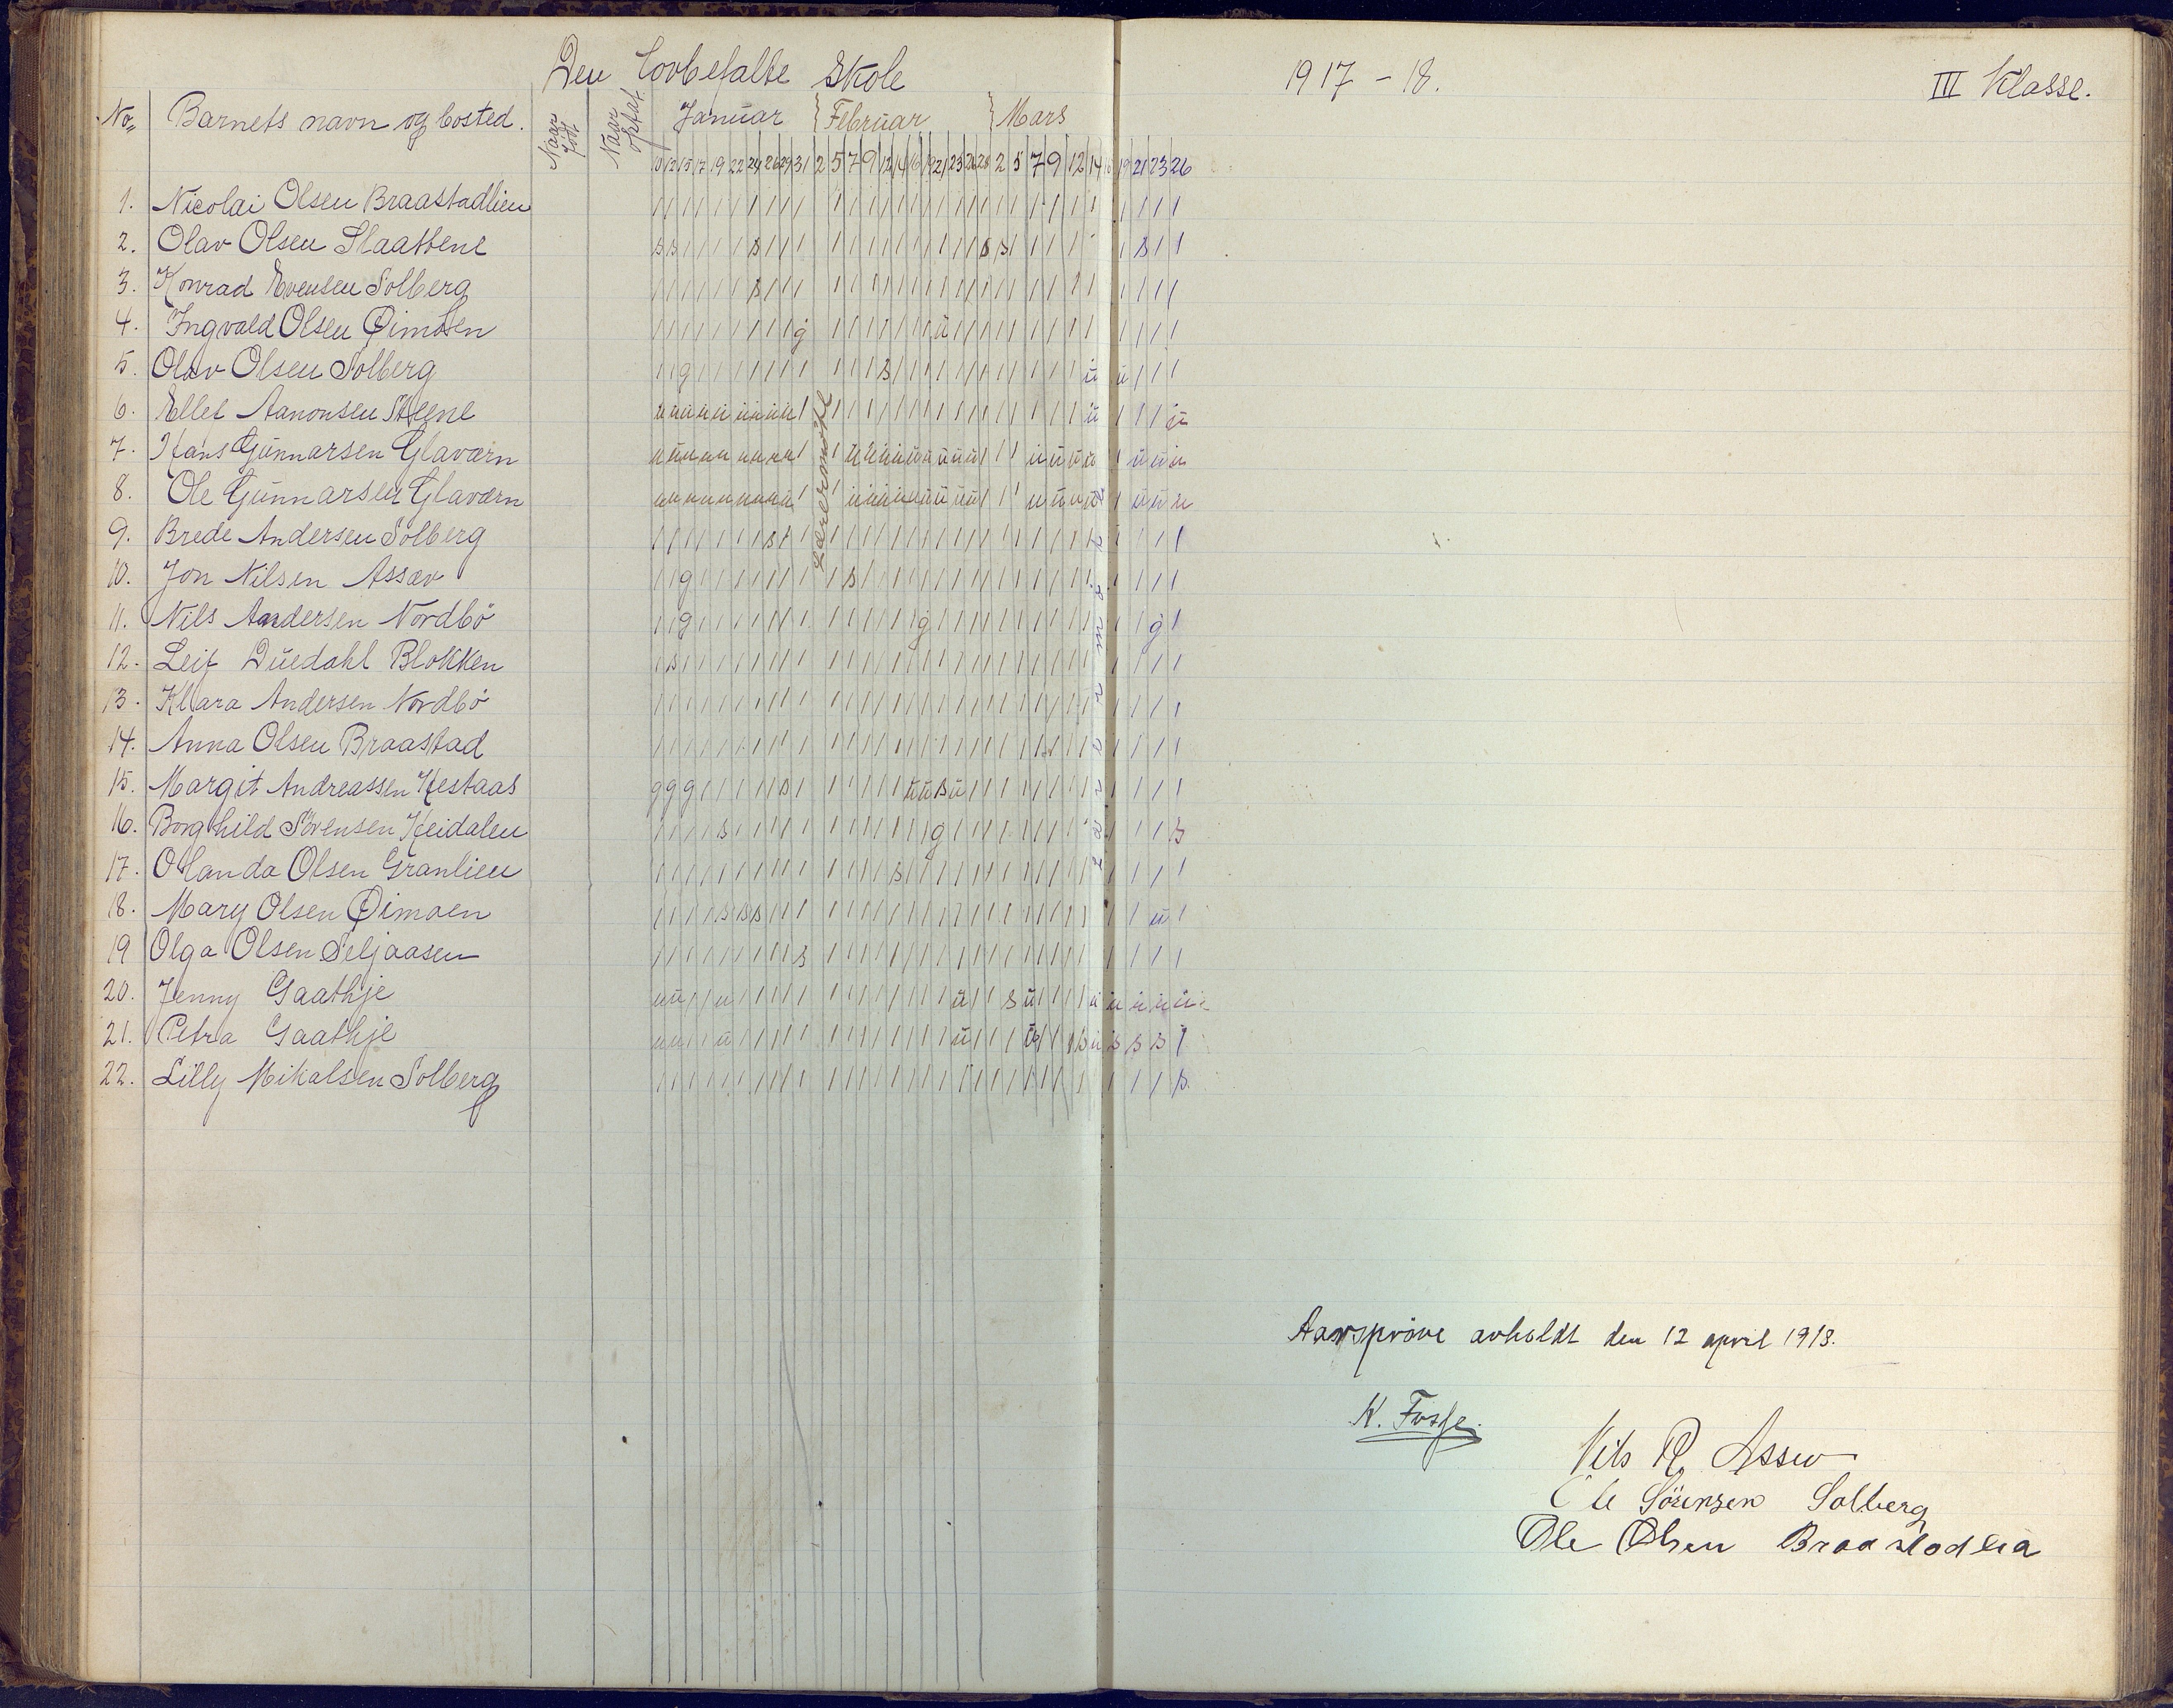 Den lovbefalte Skole
1917 - 18.
III Klasse.
No. Barnets navn og bosted. Naar født Naar optat. Januar Februar Mars
10 12 15 17 19 22 24 26 29 31 2 5 7 9 12 14 16 19 21 23 26 28 2 5 7 9 12 14 16 19 21 23 26
1. Nicolai Olsen Braastadlien
2. Olav Olsen Slaattene
3. Konrad Evensen Solberg
4. Ingvald Olsen Øimoen
5. Olav Olsen Solberg
6. Ellef Aanonsen Steene
7. Hans Gunnarsen Glaværn
8. Ole Gunnarsen Glaværn
9. Brede Andersen Solberg
10. Jon Nilsen Assæv
11. Nils Andersen Nordbö
12. Leif Duedahl Blokken
13. Klara Andersen Nordbö
14. Anna Olsen Braastad
15. Margit Andreassen Hestaas
16. Borghild Sörensen Heidalen
17. Olanda Olsen Granlien
18. Mary Olsen Øimoen
19 Olga Olsen Seljaasen
20. Jenny Gaathje
21. Petra Gaathje
22. Lilly Mikalsen Solberg
Lærermöte
Lærermöte
Aarspröve avholdt den 12 april 1918.
N. Fosse.
Nils R. Assev
Ole Sörensen Solberg
Ole Olsen Braastadlia